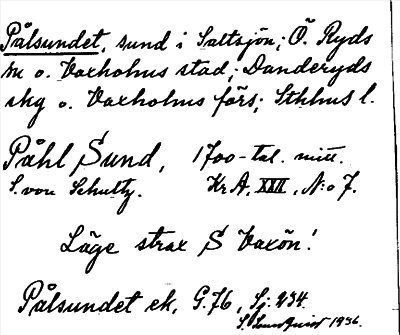 Pålsundet, sund i Saltsjön; Ö. Ryds
sn o. Vaxholms stad; Danderyds
skg o. Vaxholms förs; Sthlms l.
Påhl Sund, 1700-tal. mitt.
S. von Schultz. Kr A, XXII, N:o 7.
Läge strax S Vaxön!
Pålsundet ek, G.76, Sj: 234.
S. 1936.